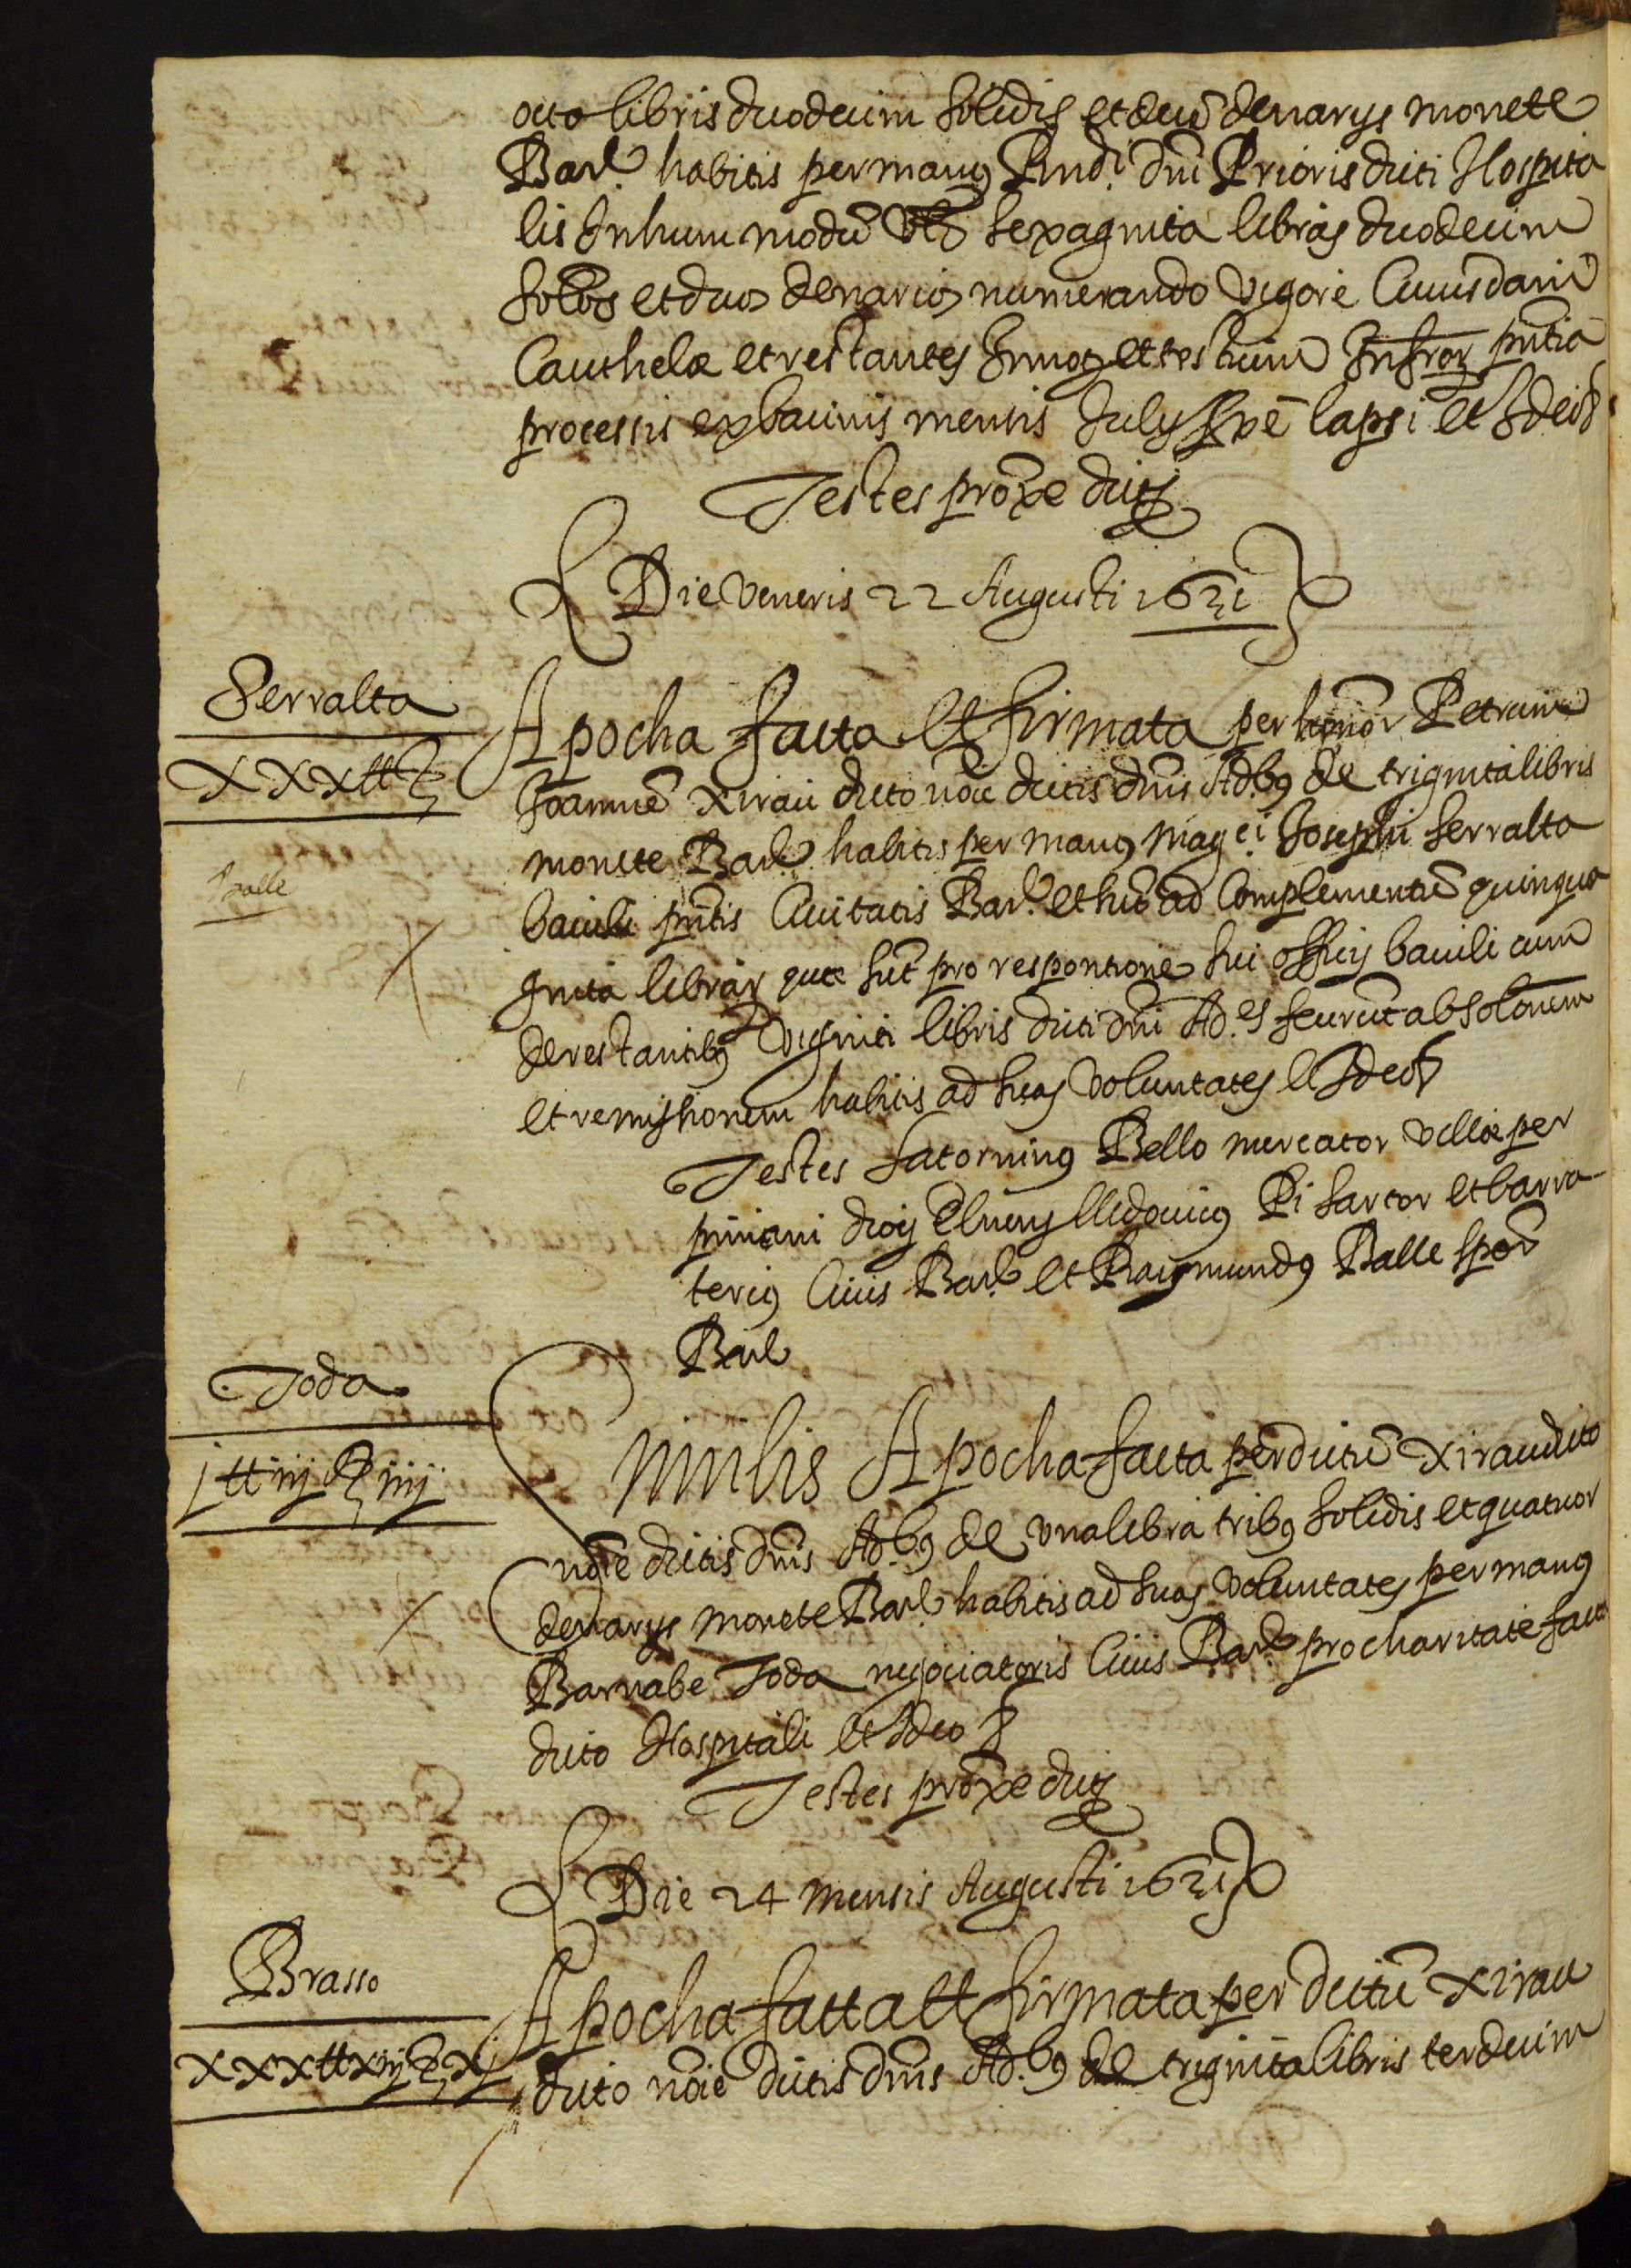 octo libris duodecim solidis et decē denarys monete
Barᵉ habitis per manus Rndi dni Prioris dicti Hospita
lis In hunc modū sexaginta libras duodecim
solos et duos denarios numerando vigore cuiusdam
Cauthelæ et restantes
processis ex mensis July lapsi et Ideo
Testes proxe dicti
Die Veneris 22 Augusti 1631
Serralta
XXX tt
Balle
Apocha facta et firmata per honor Petrum
Joannē Xirau dicto noīe dictis dnis Ad.bs de triginta libris
monete Bare habitis per manus magci Josephi Serralta
baiuli pntis Civitatis Bare et hec ad complementū quinqua
ginta librar que sut pro responsione sui officy baiuli cum
de restantibs viginti libris dicti dni Ad.es fecerūt absolonem
et remissionem habitis ad suas voluntates et Ideo
Testes Satorninus Bello mercator villæ per
piniani diocis Elnensis Lledovicus Pi sartor et barra
terius civis Bare et Raymundus Balle scpor
Bare
Toda
j tt iij ẞ iiij
Similis Apocha facta per dictū Xirau dicto
noīe dictis dnis Ad.bs de una libra tribs solidis et quatuor
denarys monete Bare habitis ad suas voluntates per manus
Barnabe Toda negociatoris civis Bare pro charitate facta
dicto Hospitali et Ideo
Testes proxe dicti
Die 24 mensis Augusti 1631
Brasso
XXX tt xiij ẞ xj
Apocha facta et firmata per dictū Xirau
dicto noīe dictis dnis Ad.bs de triginta libris terdecim